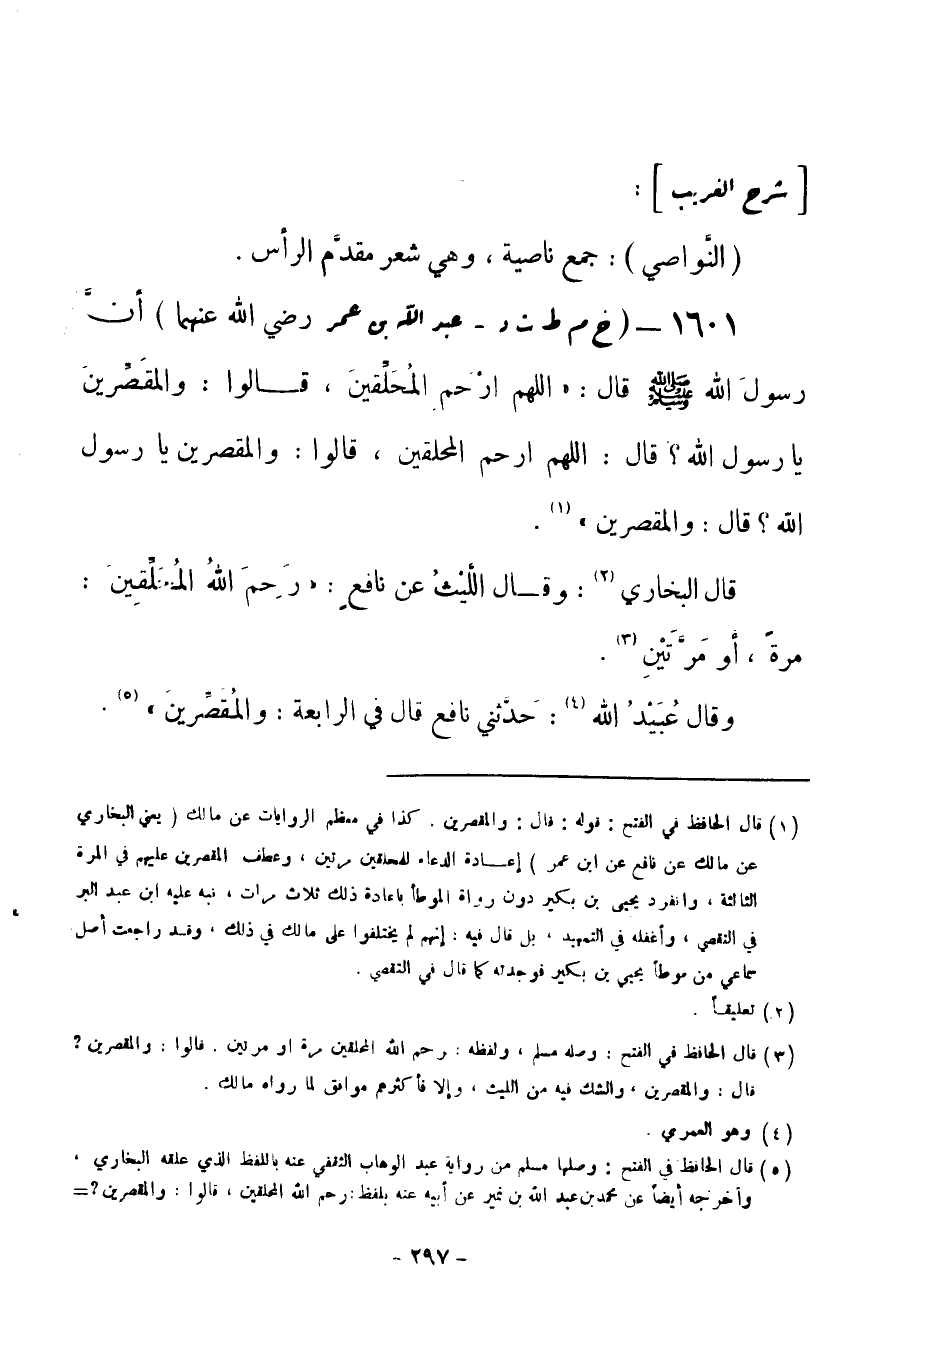 [ شرح الغريب ] :
( النَّواصي ) : جمع ناصية ، وهي شعر مقدَّم الرأس .
١٦٠١ – ( خ م ط ت د - عبد الله بن عمر رضي الله عنهما ) أنَّ
رسولَ الله ﷺ قال : « اللهم ارْحَمِ المُحَلِّقينَ ، قــالوا : والمقَصِّرينَ
يا رسول الله ؟ قال : اللهم ارحم المحلقين ، قالوا : والمقصرين يا رسول
الله ؟ قال : والمقصرين » (١) .
قال البخاري (٢) : وقــال اللَّيْثُ عن نافعٍ : « رَحِمَ اللهُ المُحَلِّقِينَ :
مرةً ، أو مَرَّتَيْنِ (٣) .
وقال عُبَيْدُ الله (٤) : حَدَّثني نافع قال في الرابعة : والمُقَصِّرينَ » (٥) .
(١) قال الحافظ في الفتح : قوله : قال : والمقصرين . كذا في معظم الروايات عن مالك ( يعني البخاري
عن مالك عن نافع عن ابن عمر ) إعــادة الدعاء للمحلقين مرتين ، وعطف المقصرين عليهم في المرة
الثالثة ، وانفرد يحيى بن بكير دون رواة الموطأ باعادة ذلك ثلاث مرات ، نبه عليه ابن عبد البر
في التقصي ، وأغفله في التمهيد ، بل قال فيه : إنهم لم يختلفوا على مالك في ذلك ، وقــد راجعت أصل
سماعي من موطأ يحيى بن بكير فوجدته كما قال في التقصي .
(٢) تعليقاً .
(٣) قال الحافظ في الفتح : وصله مسلم ، ولفظه : رحم الله المحلقين مرة او مرتين . قالوا : والمقصرين ؟
قال : والمقصرين ، والشك فيه من الليث ، وإلا فأكثرهم موافق لما رواه مالك .
(٤) وهو العمري .
(٥) قال الحافظ في الفتح : وصلها مسلم من رواية عبد الوهاب الثقفي عنه باللفظ الذي علقه البخاري ،
وأخرجه أيضاً عن محمد بن عبد الله بن نمير عن أبيه عنه بلفظ : رحم الله المحلقين ، قالوا : والمقصرين ؟ =
- ٢٩٧ -